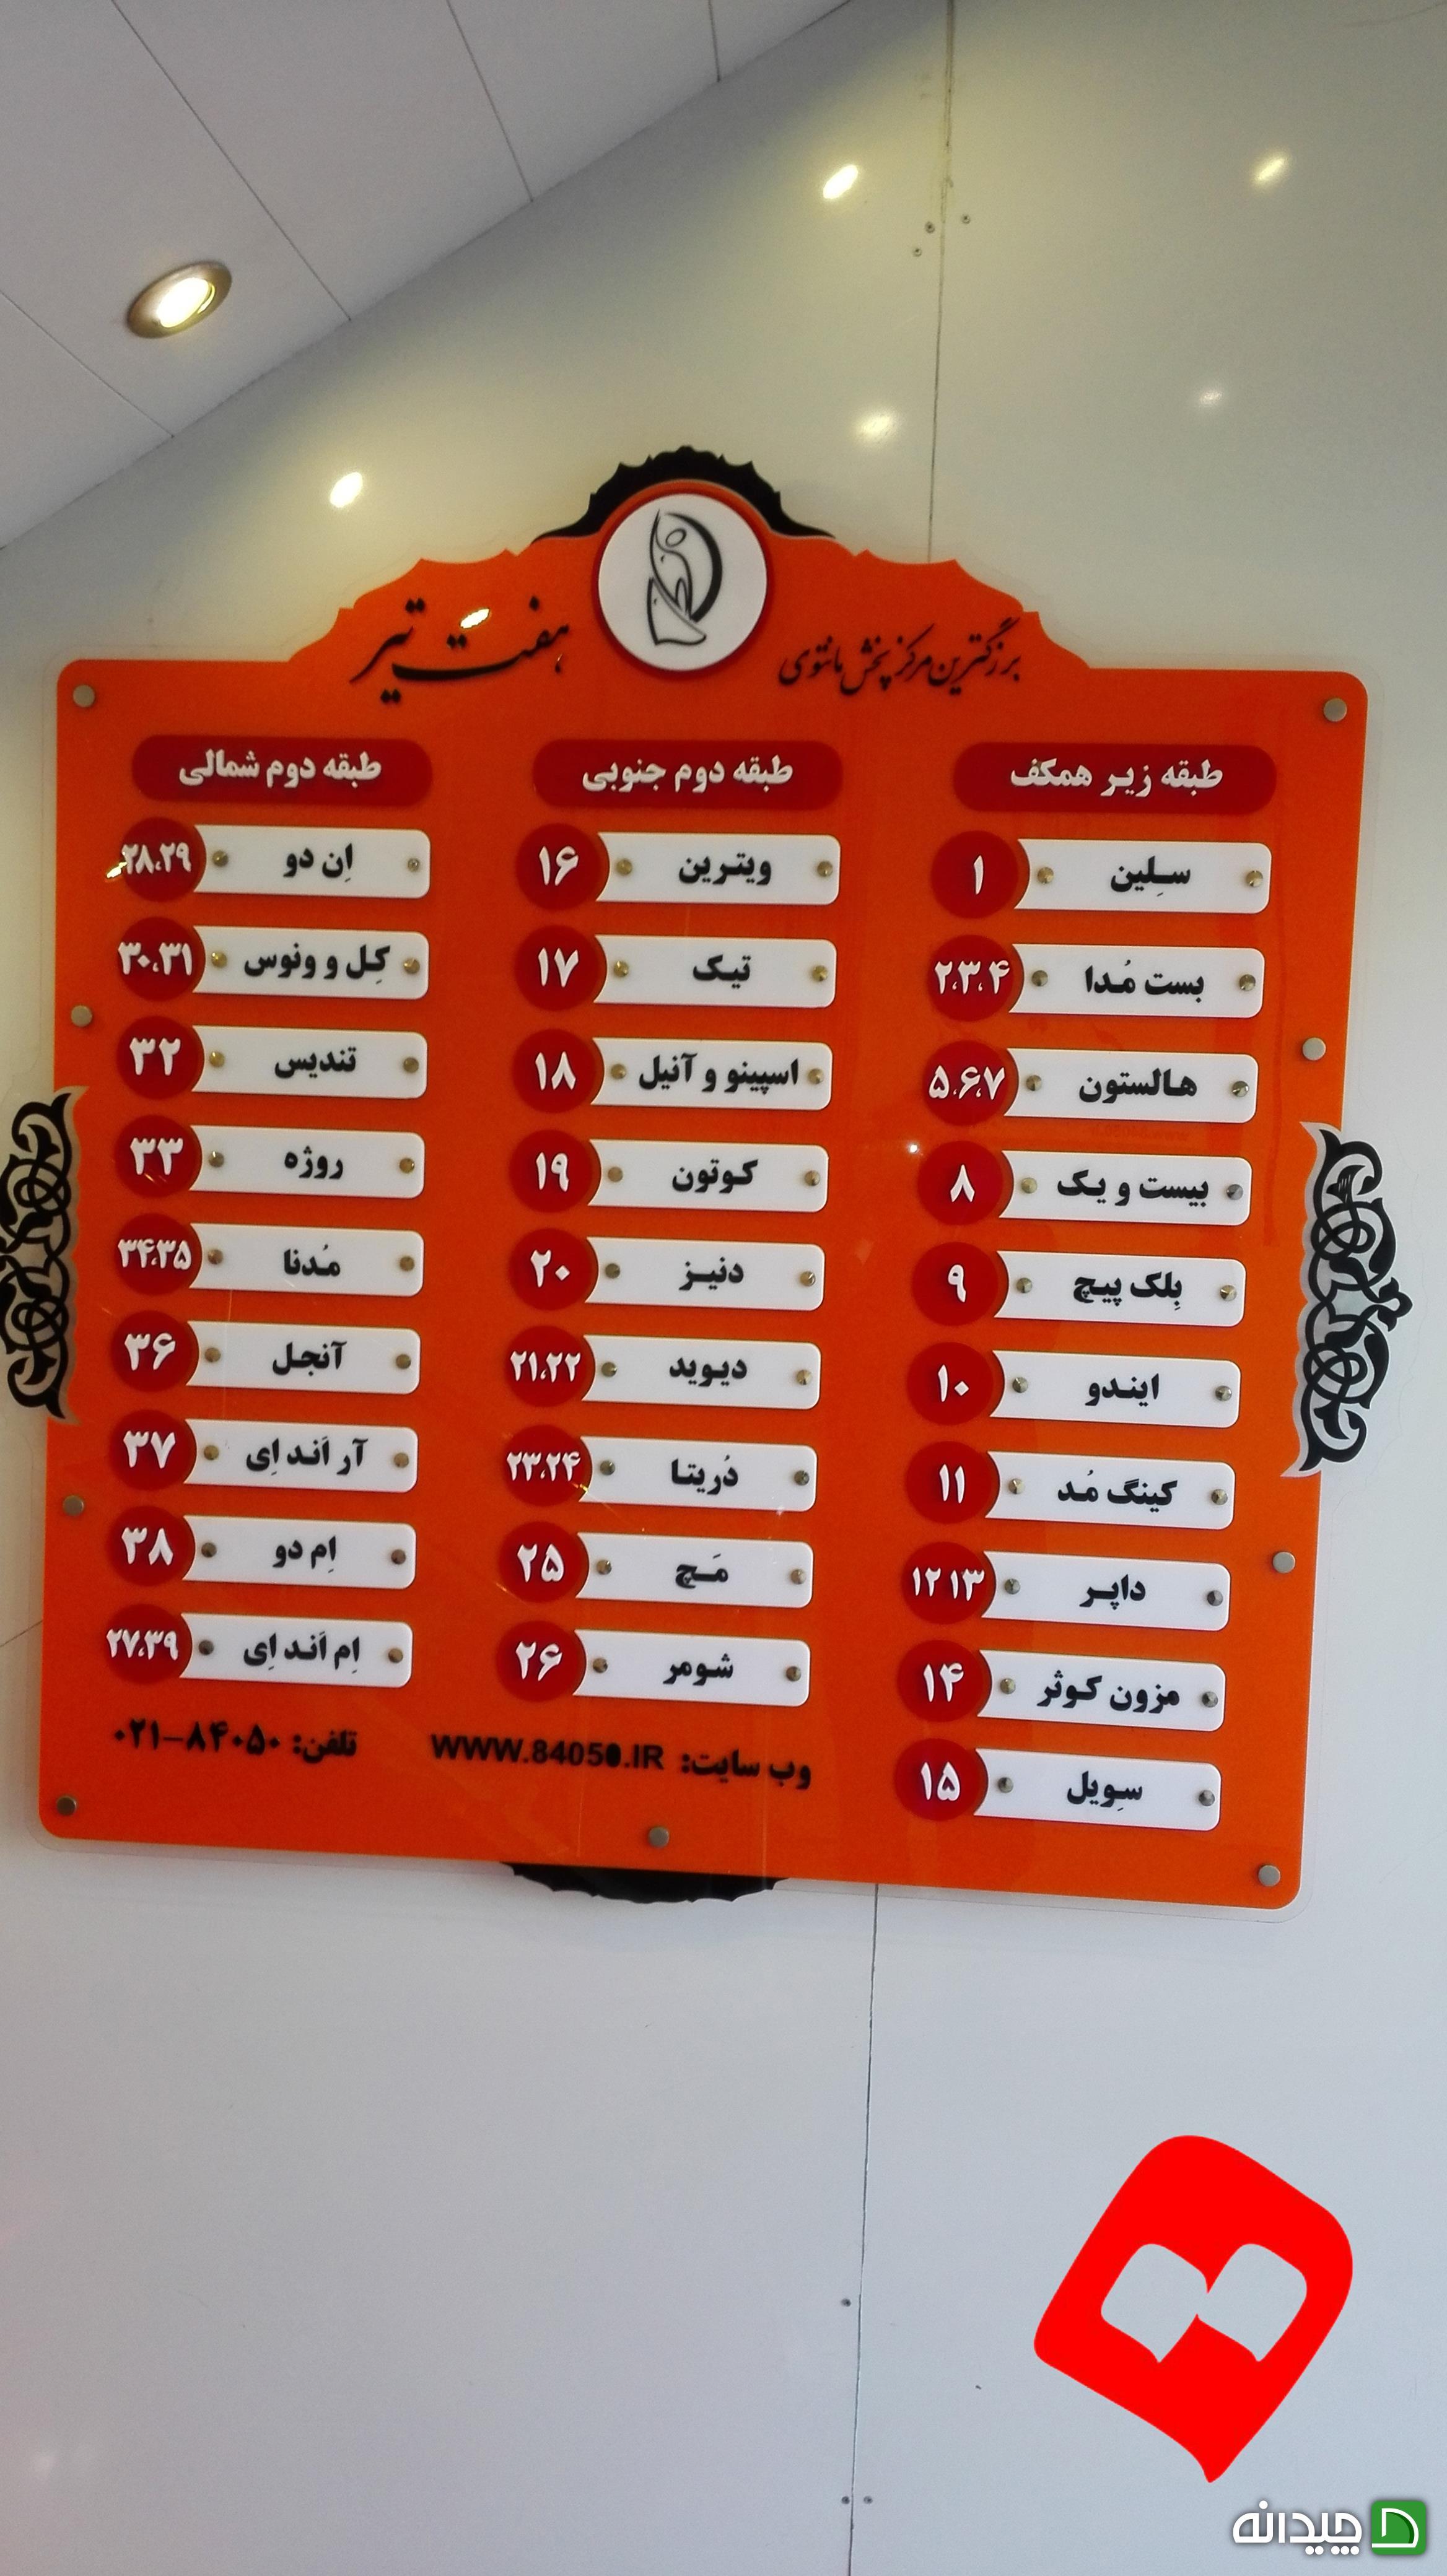 بزرگترین مرکز پخش مانتوی
هفت تیر
طبقه زیر همکف
سِلین ۱
بست مُدا ۲،۳،۴
هالستون ۵،۶،۷
بیست و یک ۸
بِلک پیچ ۹
ایندو ۱۰
کینگ مُد ۱۱
داپر ۱۲ ۱۳
مزون کوثر ۱۴
سِویل ۱۵
طبقه دوم جنوبی
ویترین ۱۶
تیک ۱۷
اسپینو و آنیل ۱۸
کوتون ۱۹
دنیز ۲۰
دیوید ۲۱،۲۲
دُریتا ۲۳،۲۴
مَچ ۲۵
شومر ۲۶
طبقه دوم شمالی
اِن دو ۲۸،۲۹
کِل و ونوس ۳۰،۳۱
تندیس ۳۲
روژه ۳۳
مُدنا ۳۴،۳۵
آنجل ۳۶
آر اَند اِی ۳۷
اِم دو ۳۸
اِم اَند اِی ۲۷،۳۹
وب سایت: WWW.84050.IR
تلفن: ۸۴۰۵۰-۰۲۱
چیدانه